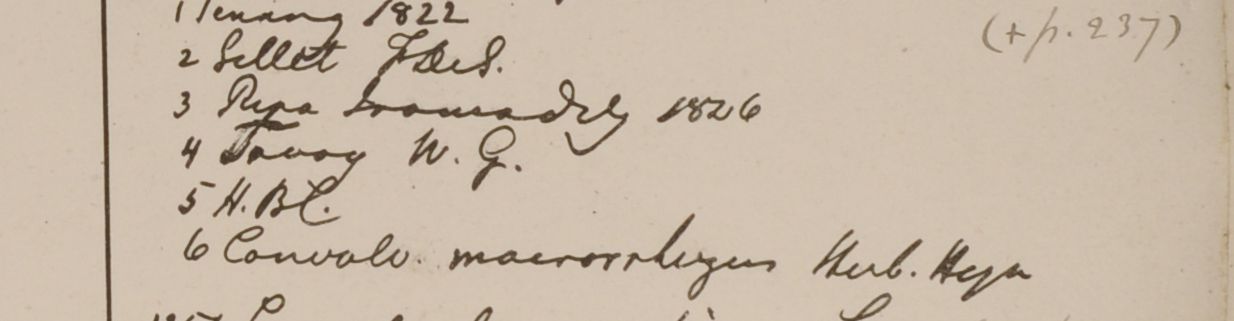 1 Penang 1822
(+ p. 237)
2 Sillet F.De S.
3 Ripa Irawaddy 1826
4 Tavoy W. G.
5 H.B.C.
6 Convolv. macrorrhizus Herb. Heyn